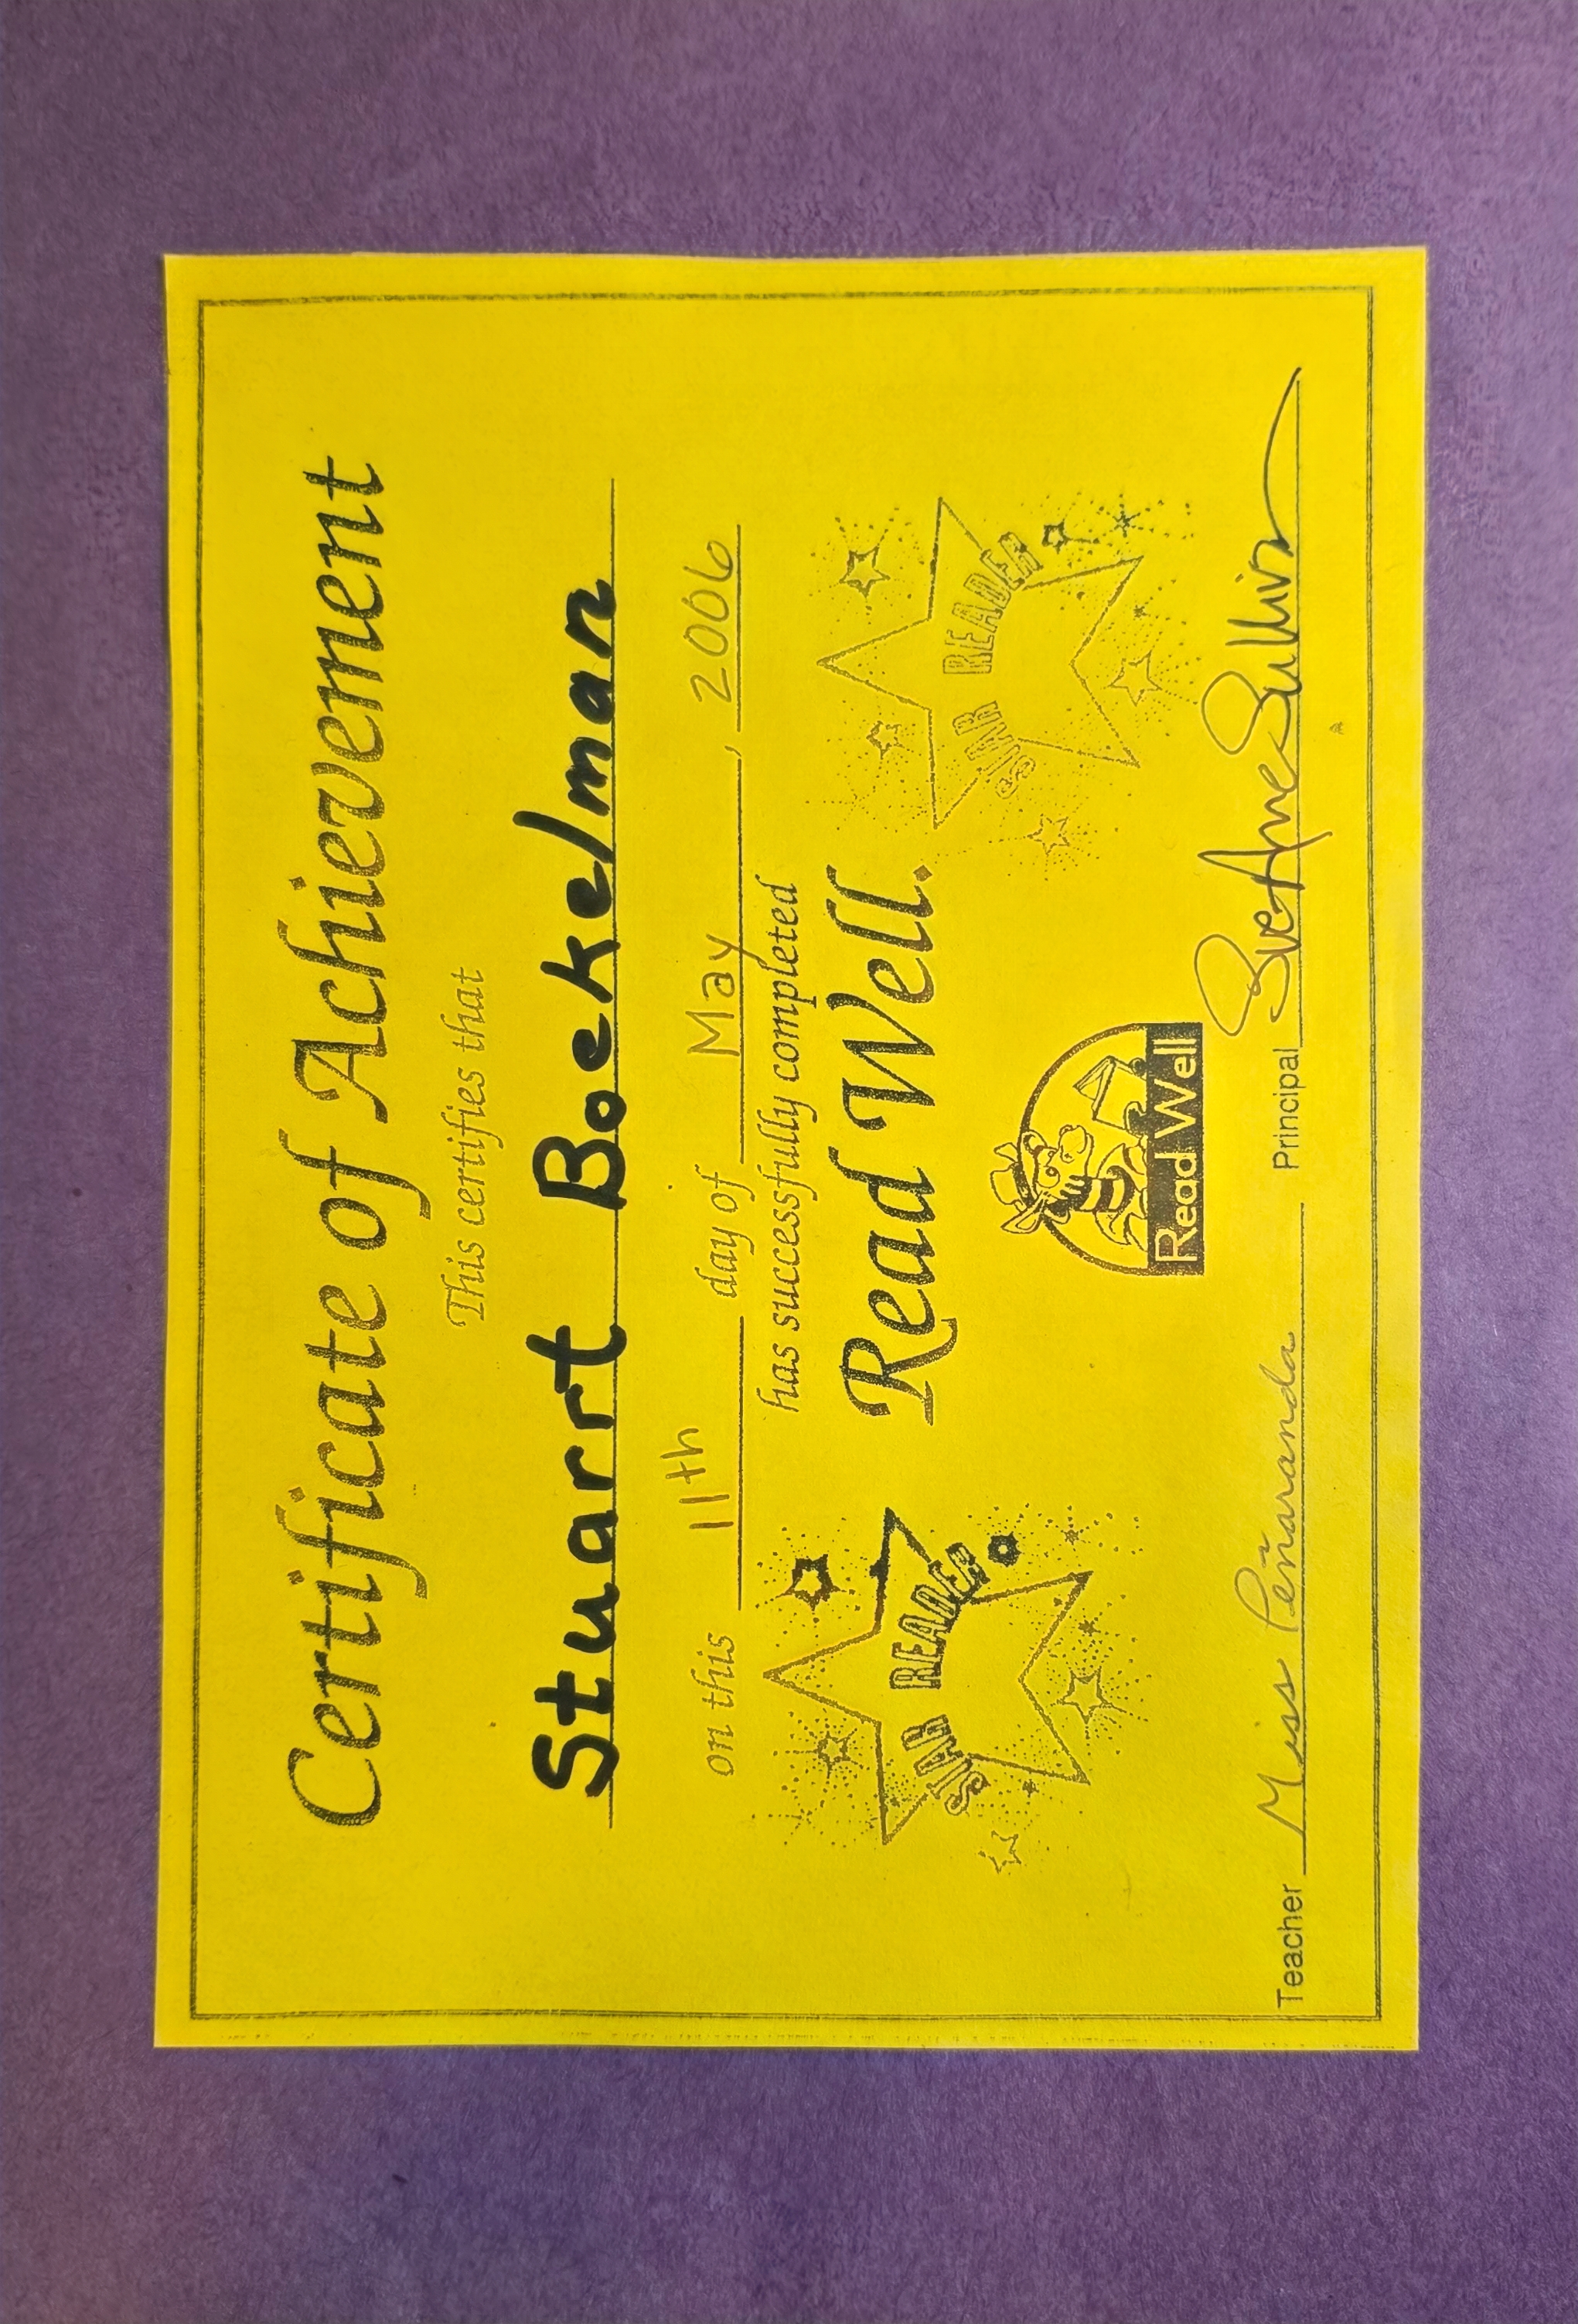 Certificate of Achievement
This certifies that
Stuart Boekelman
on this 11th day of May, 2006
has successfully completed
Read Well.
STAR READER
STAR READER
Read Well
Teacher Miss Peñaranda Principal Sue Anne Sullivan